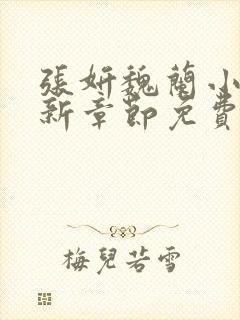 張妍魏蘭小
新章節免費
梅兒若雪